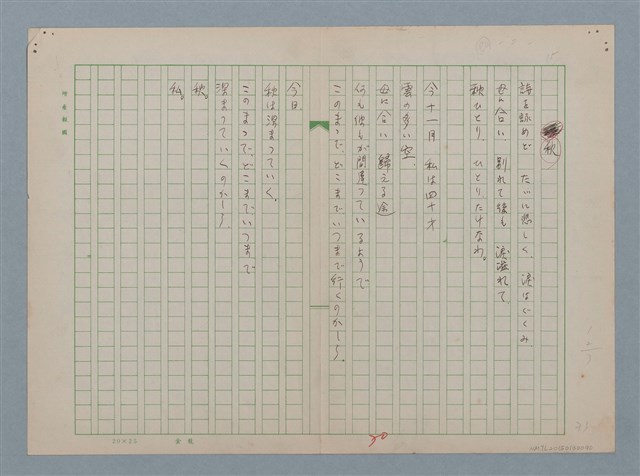 秋
詩を詠めど たゞに悲しく、涙はぐくみ
母に会い、別れて後も 涙溢れて
秋ひとり、ひとりだけなわ。
今十一月 私は四十才
雲の多い空、
母に会い 歸える途
何も彼もが間違っているようで
このまゝで、どこまでいつまで行くのかしら、
今日、
秋は深まっていく。
このまゝでどこまでいつまで
深まっていくのかしら、
秋。
私。
30
20×25